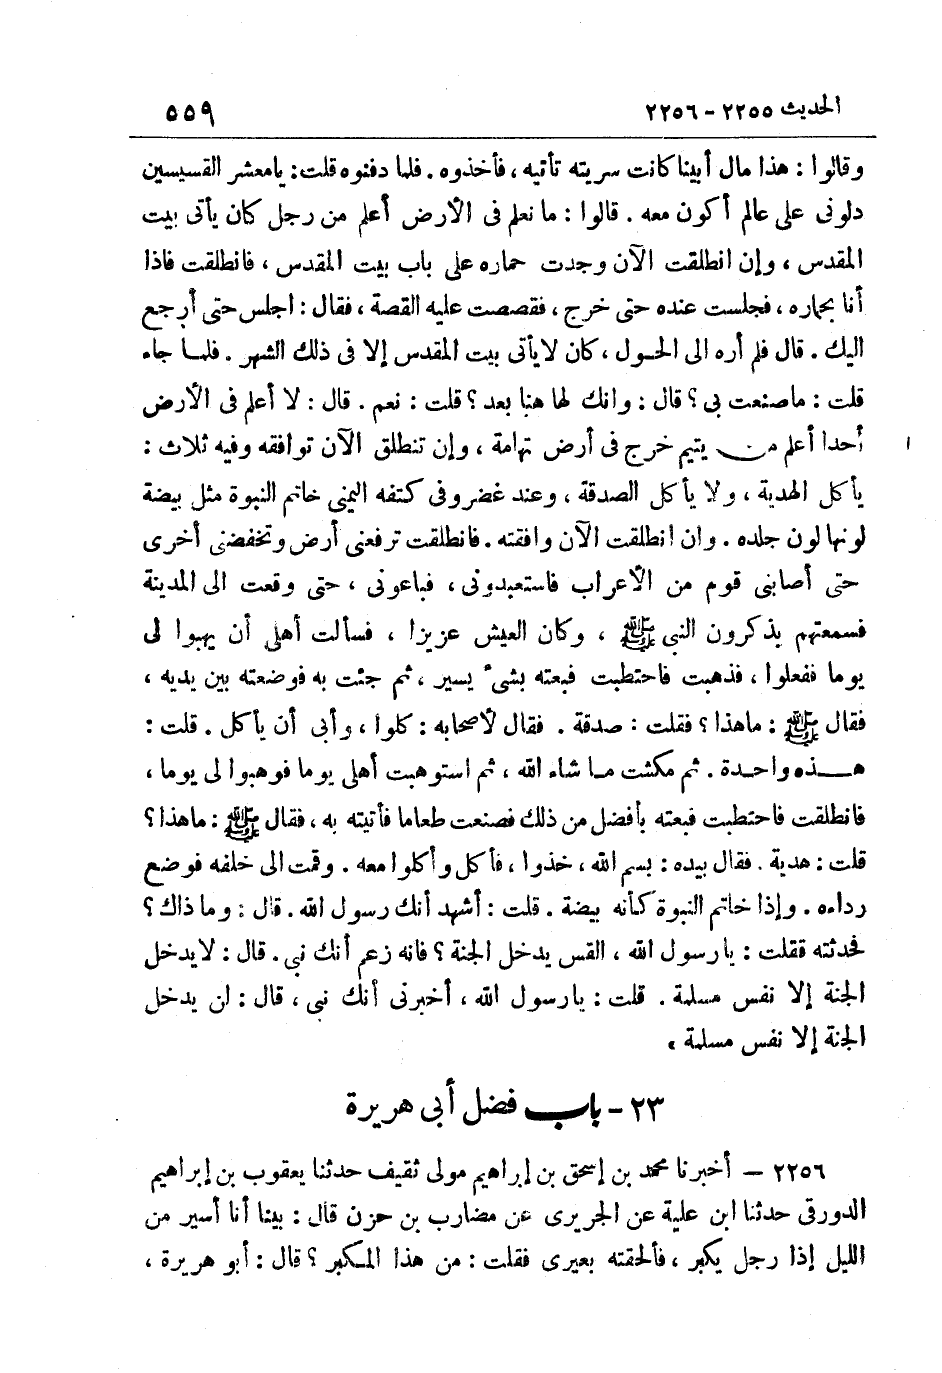 الحديث ٢٢٥٥ - ٢٢٥٦ ٥٥٩
وقالوا : هذا مال أبينا كانت سريته تأتيه ، فأخذوه . فلما دفنوه قلت : يا معشر القسيسين
دلونى على عالم أكون معه . قالوا : ما نعلم فى الأرض أعلم من رجل كان يأتى بيت
المقدس ، وإن انطلقت الآن وجدت حماره على باب بيت المقدس ، فانطلقت فاذا
أنا بحماره ، فجلست عنده حتى خرج ، فقصصت عليه القصة ، فقال : اجلس حتى أرجع
اليك . قال فلم أره الى الحول ، كان لا يأتى بيت المقدس إلا فى ذلك الشهر . فلما جاء
قلت : ما صنعت بى ؟ قال : وانك لها هنا بعد ؟ قلت : نعم . قال : لا أعلم فى الأرض
أحدا أعلم من يتيم خرج فى أرض تهامة ، وإن تنطلق الآن توافقه وفيه ثلاث :
يأكل الهدية ، ولا يأكل الصدقة ، وعند غضروفى كتفه اليمنى خاتم النبوة مثل بيضة
لونها لون جلده . وان انطلقت الآن وافقته . فانطلقت ترفعنى أرض وتخفضنى أخرى
حتى أصابنى قوم من الأعراب فاستعبدونى ، فباعونى ، حتى وقعت الى المدينة
فسمعتهم يذكرون النبى ﷺ ، وكان العيش عزيزا ، فسألت أهلى أن يهبوا لى
يوما ففعلوا ، فذهبت فاحتطبت فبعته بشىء يسير ، ثم جئت به فوضعته بين يديه ،
فقال ﷺ : ما هذا ؟ فقلت : صدقة . فقال لأصحابه : كلوا ، وأبى أن يأكل . قلت :
هذه واحدة . ثم مكثت ما شاء الله ، ثم استوهبت أهلى يوما فوهبوا لى يوما ،
فانطلقت فاحتطبت فبعته بأفضل من ذلك فصنعت طعاما فأتيته به ، فقال ﷺ : ما هذا ؟
قلت : هدية . فقال بيده : بسم الله ، خذوا ، فأكل وأكلوا معه . وقمت الى خلفه فوضع
رداءه . وإذا خاتم النبوة كأنه بيضة . قلت : أشهد أنك رسول الله . قال : وما ذاك ؟
فحدثته فقلت : يا رسول الله ، القس يدخل الجنة ؟ فانه زعم أنك نبى . قال : لا يدخل
الجنة إلا نفس مسلمة . قلت : يا رسول الله ، أخبرنى أنك نبى ، قال : لن يدخل
الجنة إلا نفس مسلمة ،
٢٣ - باب فضل أبى هريرة
٢٢٥٦ - أخبرنا محمد بن إسحق بن إبراهيم مولى ثقيف حدثنا يعقوب بن إبراهيم
الدورقى حدثنا ابن علية عن الجريرى عن مضارب بن حزن قال : بينا أنا أسير من
الليل إذا رجل يكبر ، فألحقته بعيرى فقلت : من هذا المكبر ؟ قال : أبو هريرة ،